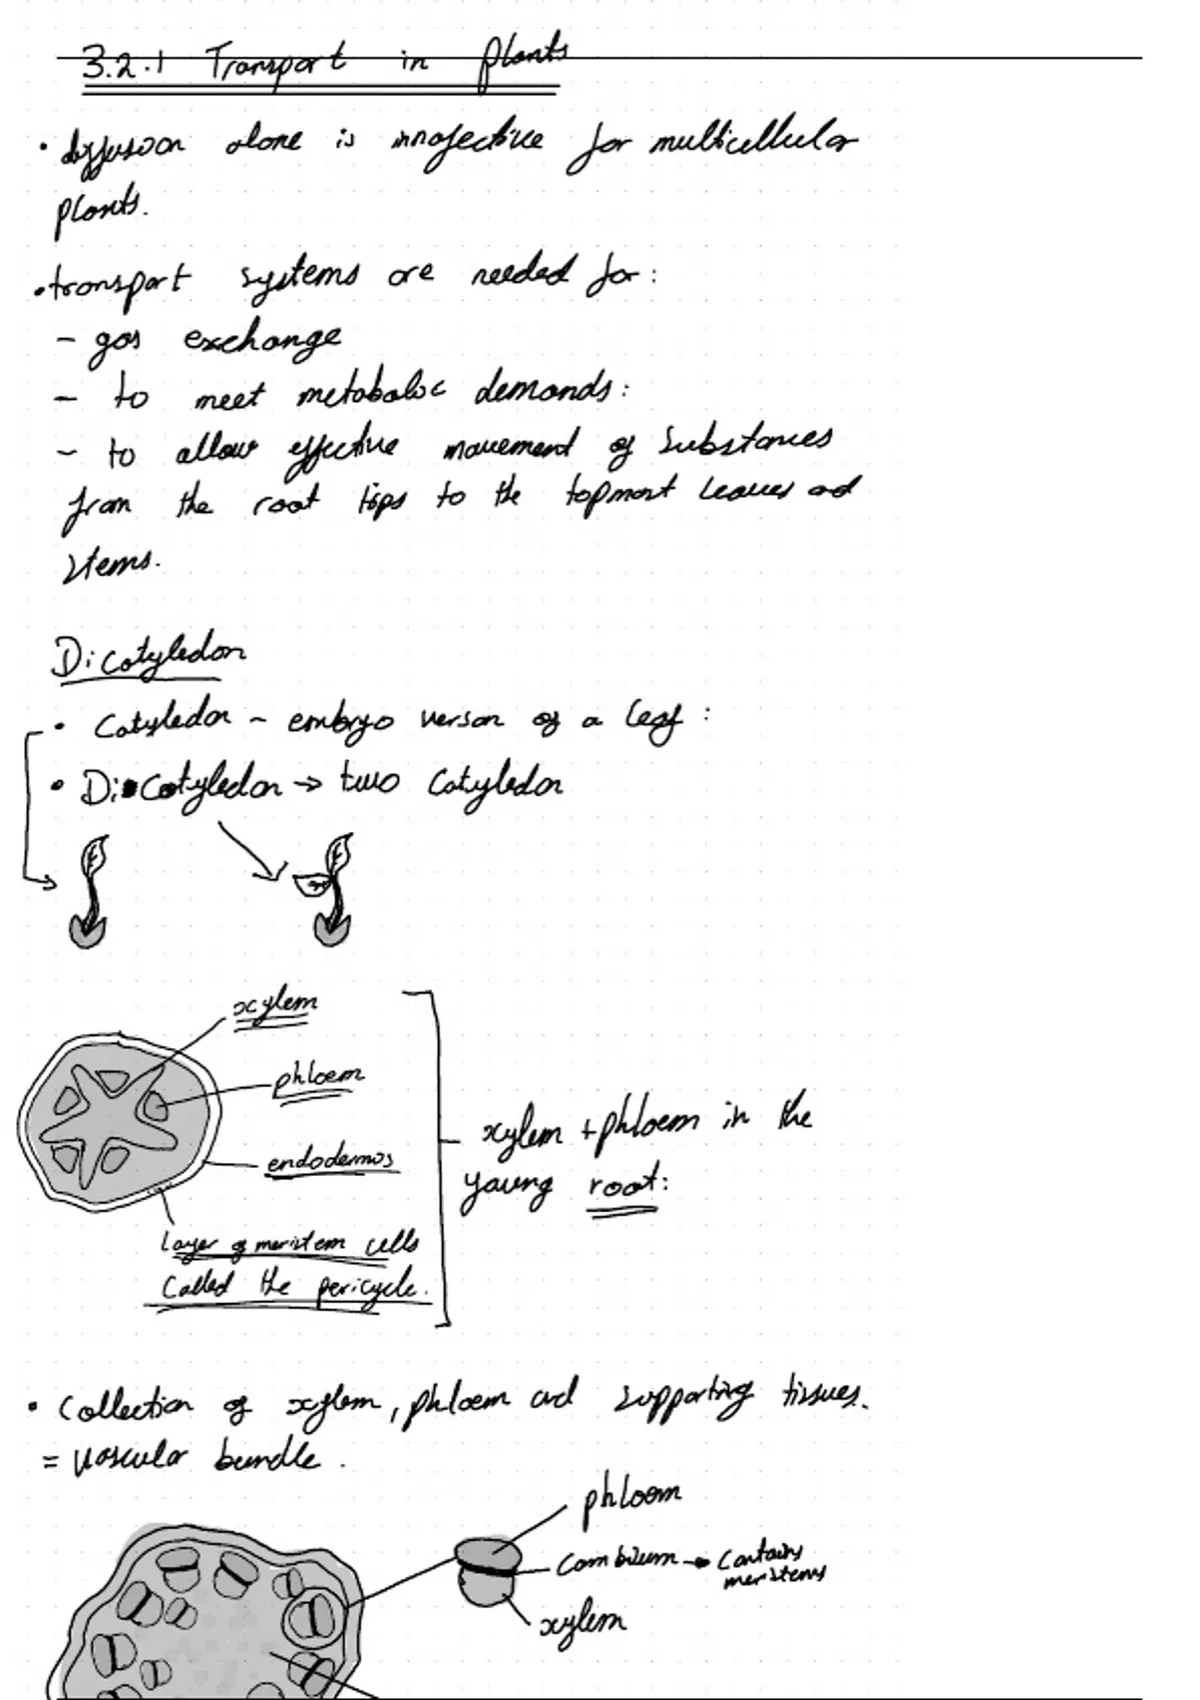 3.2.1 Transport in plants
• diffusion alone is innefective for multicellular
plants.
• transport systems are needed for:
- gas exchange
- to meet metabolic demands:
- to allow effective movement of substances
from the root tips to the topmost leaves and
stems.
Dicotyledon
• Cotyledon - embryo verson of a leaf:
• Di Cotyledon → two Cotyledon
xylem
phloem
endodermis
Layer of meristem cells
Called the pericycle.
xylem + phloem in the
young root:
• Collection of xylem, phloem and supporting tissues.
= vascular bundle.
phloem
Cambium → Contains
meristems
xylem